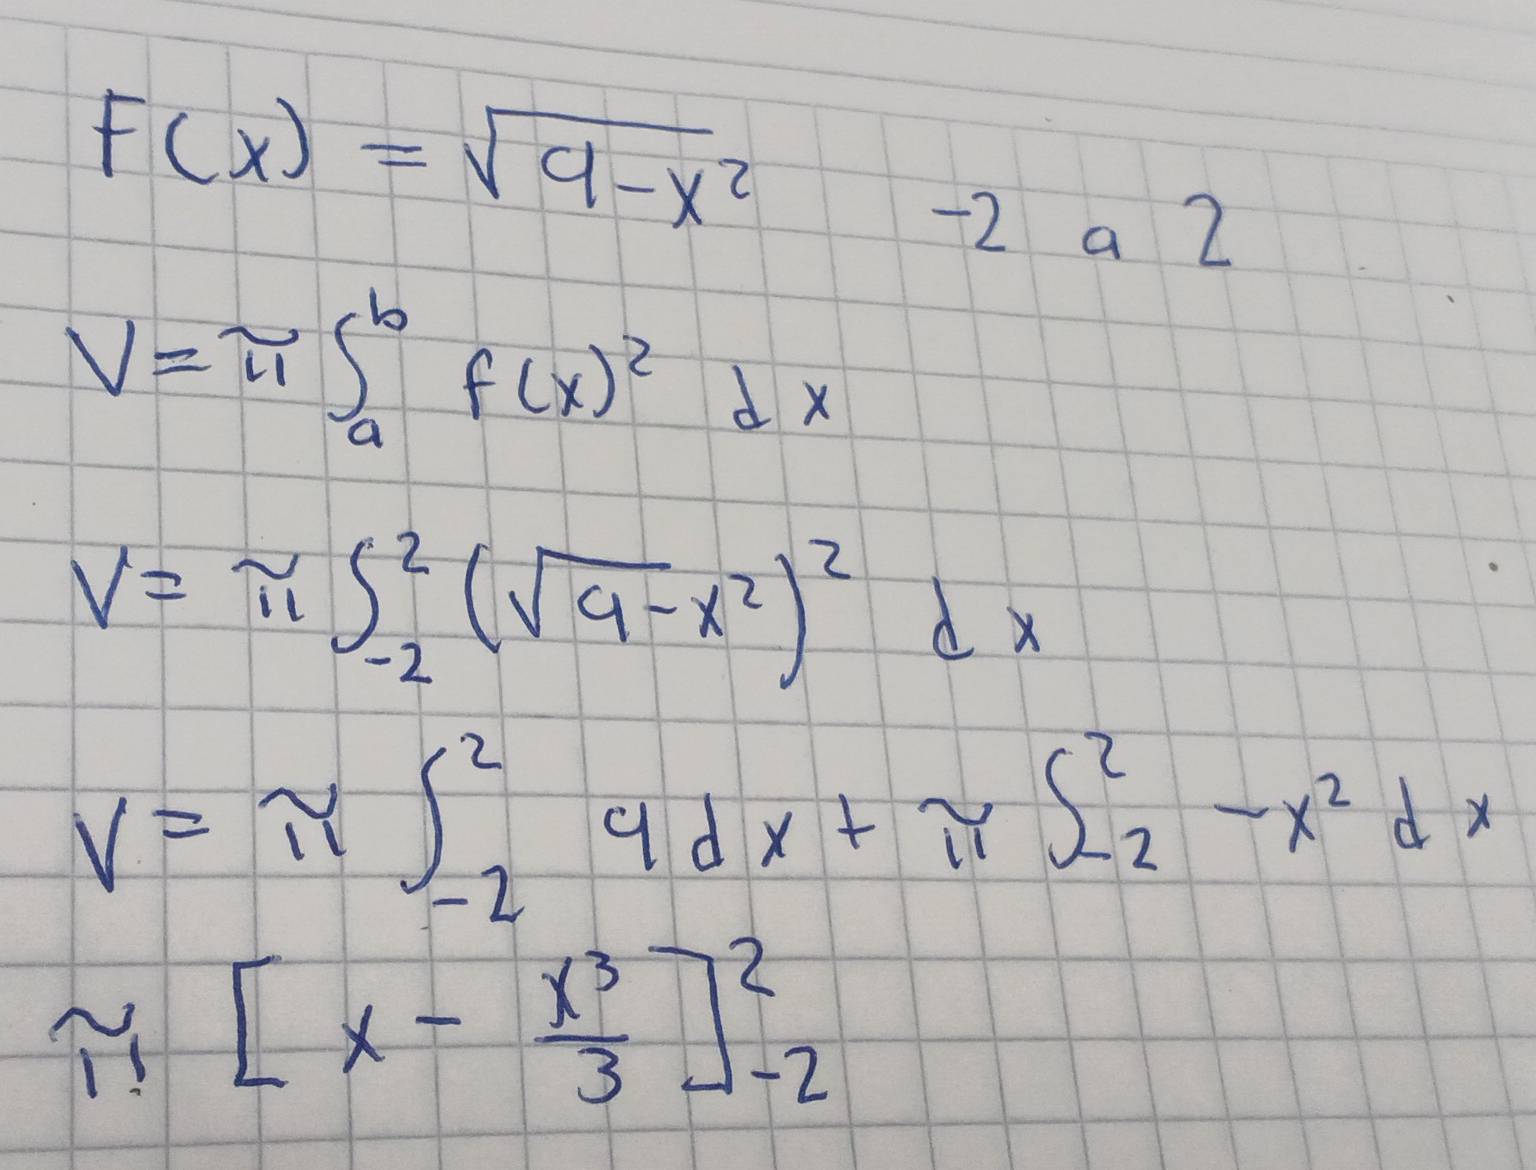 F(x) = √9-x²   -2 a 2
V = π ∫ₐᵇ f(x)² dx
V = π ∫₋₂² (√9-x²)² dx
V = π ∫₋₂² 9 dx + π ∫₋₂² -x² dx
π [x - x³/3]₋₂²